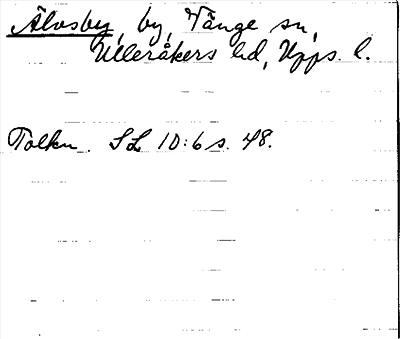 Älvsby, by, Tänge sn,
Ulleråkers hd, Upps. l.
Tolkn. SL 10:6 s. 48.